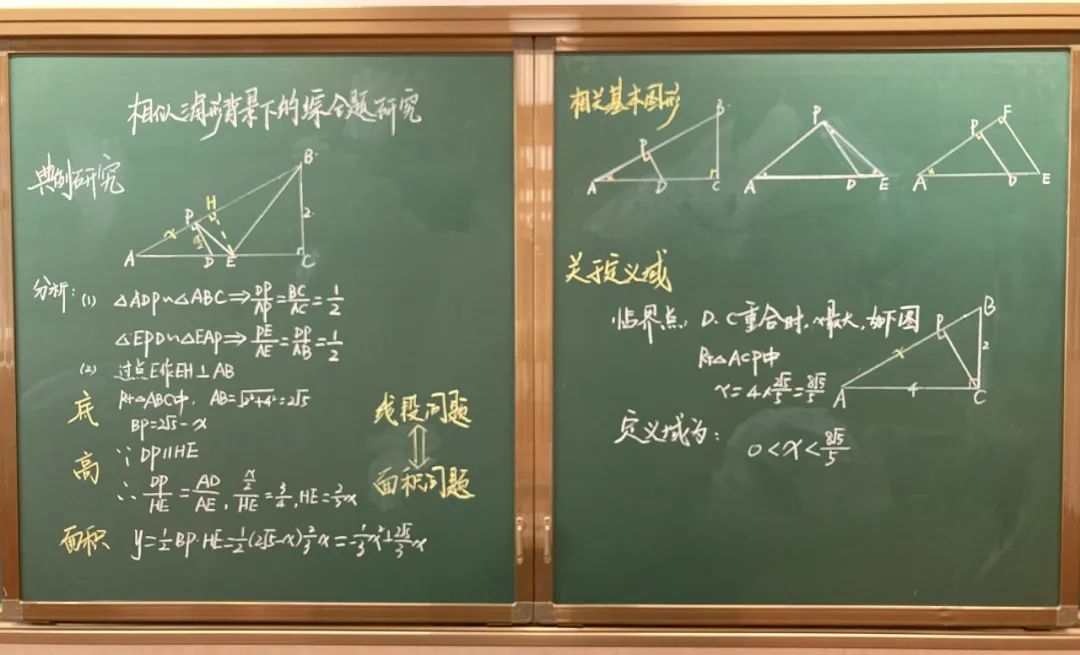 相似三角形背景下的综合题研究
典例研究
B
H
P
x
2
A
D
E
C
分析:(1) △ADP∽△ABC⇒DP/AP=BC/AC=1/2
△EPD∽△EAP⇒PE/AE=DP/AB=1/2
(2) 过点E作EH⊥AB
底 Rt△ABC中, AB=√(2²+4²)=2√5
BP=2√5-x
高 ∵DP∥HE
∴DP/HE=AD/AE, (x/2)/HE=3/4, HE=2/3x
面积 y=1/2BP·HE=1/2(2√5-x)2/3x=-1/3x²+2√5/3x
线段问题
⇕
面积问题
相关基本图形
A P B D C
A P D E
A P F D E
关于定义域
临界点: D、C重合时, x最大, 如下图
Rt△ACP中
x=4×2√5/5=8√5/5
A x P B 2 4 C
定义域为: 0<x<8√5/5